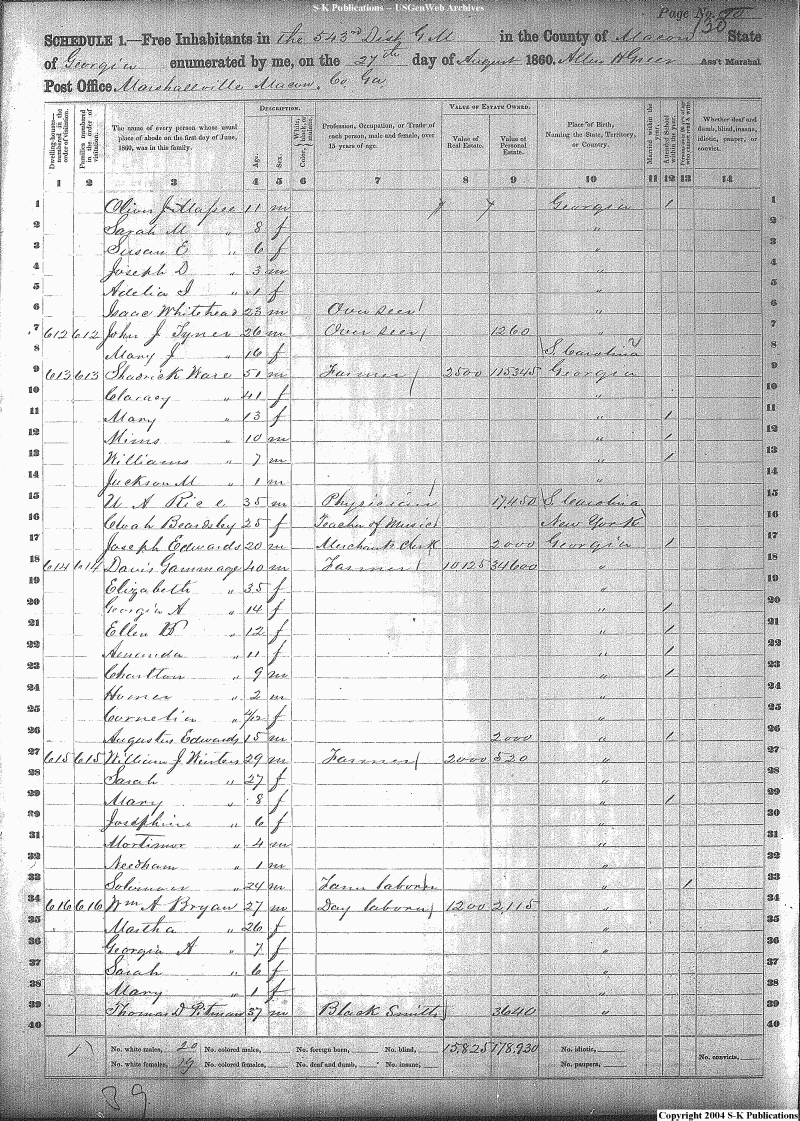 S-K Publications – USGenWeb Archives
Page No.
130
SCHEDULE 1.—Free Inhabitants in the 543rd Dist G M in the County of Macon State
of Georgia enumerated by me, on the 27th day of August 1860. Allen H Greer Ass't Marshal
Post Office Marshallville Macon Co Ga
Dwelling-houses—numbered in the order of visitation. Families numbered in the order of visitation. The name of every person whose usual place of abode on the first day of June, 1860, was in this family. DESCRIPTION. Age. Sex. Color, White, black, or mulatto. Profession, Occupation, or Trade of each person, male and female, over 15 years of age. VALUE OF ESTATE OWNED. Value of Real Estate. Value of Personal Estate. Place of Birth, Naming the State, Territory, or Country. Married within the year. Attended School within the year. Whether deaf and dumb, blind, insane, idiotic, pauper, or convict.
1 2 3 4 5 6 7 8 9 10 11 12 13 14
1 Oliver J 11 m Georgia / 1
2 Sarah M " 8 f " 2
3 Susan E " 6 f " 3
4 Joseph D " 3 m " 4
5 Adelia I " 1 f " 5
6 Isaac Whitehead 23 m Over seer " 6
7 612 612 John J Tyner 26 m Over seer 1260 " 7
8 Mary J " 16 f S. Carolina 8
9 613 613 Shadrick Ware 51 m Farmer 2500 115345 Georgia 9
10 " 41 f " 10
11 Mary " 13 f " / 11
12 Mims " 10 m " / 12
13 Williams " 7 m " / 13
14 Jackson M " 1 m " 14
15 A Rice 35 m Physician 17,450 S. Carolina 15
16 Beardsley 25 f Teacher of Music New York 16
17 Joseph Edwards 20 m Merchants Clerk 2000 Georgia / 17
18 614 614 Davis Gammage 40 m Farmer 10125 34600 " 18
19 Elizabeth " 35 f " 19
20 Georgia A " 14 f " / 20
21 Ellen " 12 f " / 21
22 Amanda " 11 f " / 22
23 Charlton " 9 m " / 23
24 Homer " 2 m " 24
25 Cornelia " 4/12 f " 25
26 Augustus Edwards 15 m 2000 " / 26
27 615 615 William J Winters 29 m Farmer 2000 520 " 27
28 Sarah " 27 f " 28
29 Mary " 8 f " / 29
29 Josephine " 6 f " 29
31 Mortimor " 4 m " 31
32 Needham " 1 m " 32
33 " 24 m Farm laborer " / 33
34 616 616 Wm A Bryan 27 m Day laborer 1200 2,115 " 34
35 Martha " 26 f " 35
36 Georgia A " 7 f " 36
37 Sarah " 6 f " 37
38 Mary " 1 f " 38
39 Thomas D Pitman 37 m Black Smith 3640 " 39
40 40
No. white males, 20 No. colored males, No. foreign born, No. blind, 15,825 178,930 No. idiotic, No. convicts,
No. white females, 19 No. colored females, No. deaf and dumb, No. insane, No. paupers,
39
Copyright 2004 S-K Publications